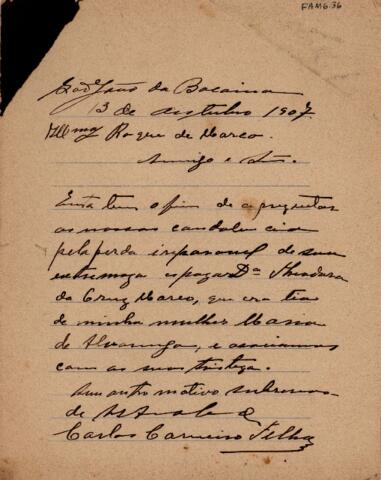 FAMG.36
São João da Bocaina
13 de outubro 1907.
Illmo Roque de Marco.
Amigo e Sr.
Esta tem o fim de apresentar
as nossas condolencia
pela perda irreparavel de sua
extremoza espoza Da Theodora
da Cruz Marco, que era tia
de minha mulher Maria
de Alvarenga, e associamos
com as suas tristeza.
Sem outro motivo subscrevo-
de
Carlos Carneiro Filho